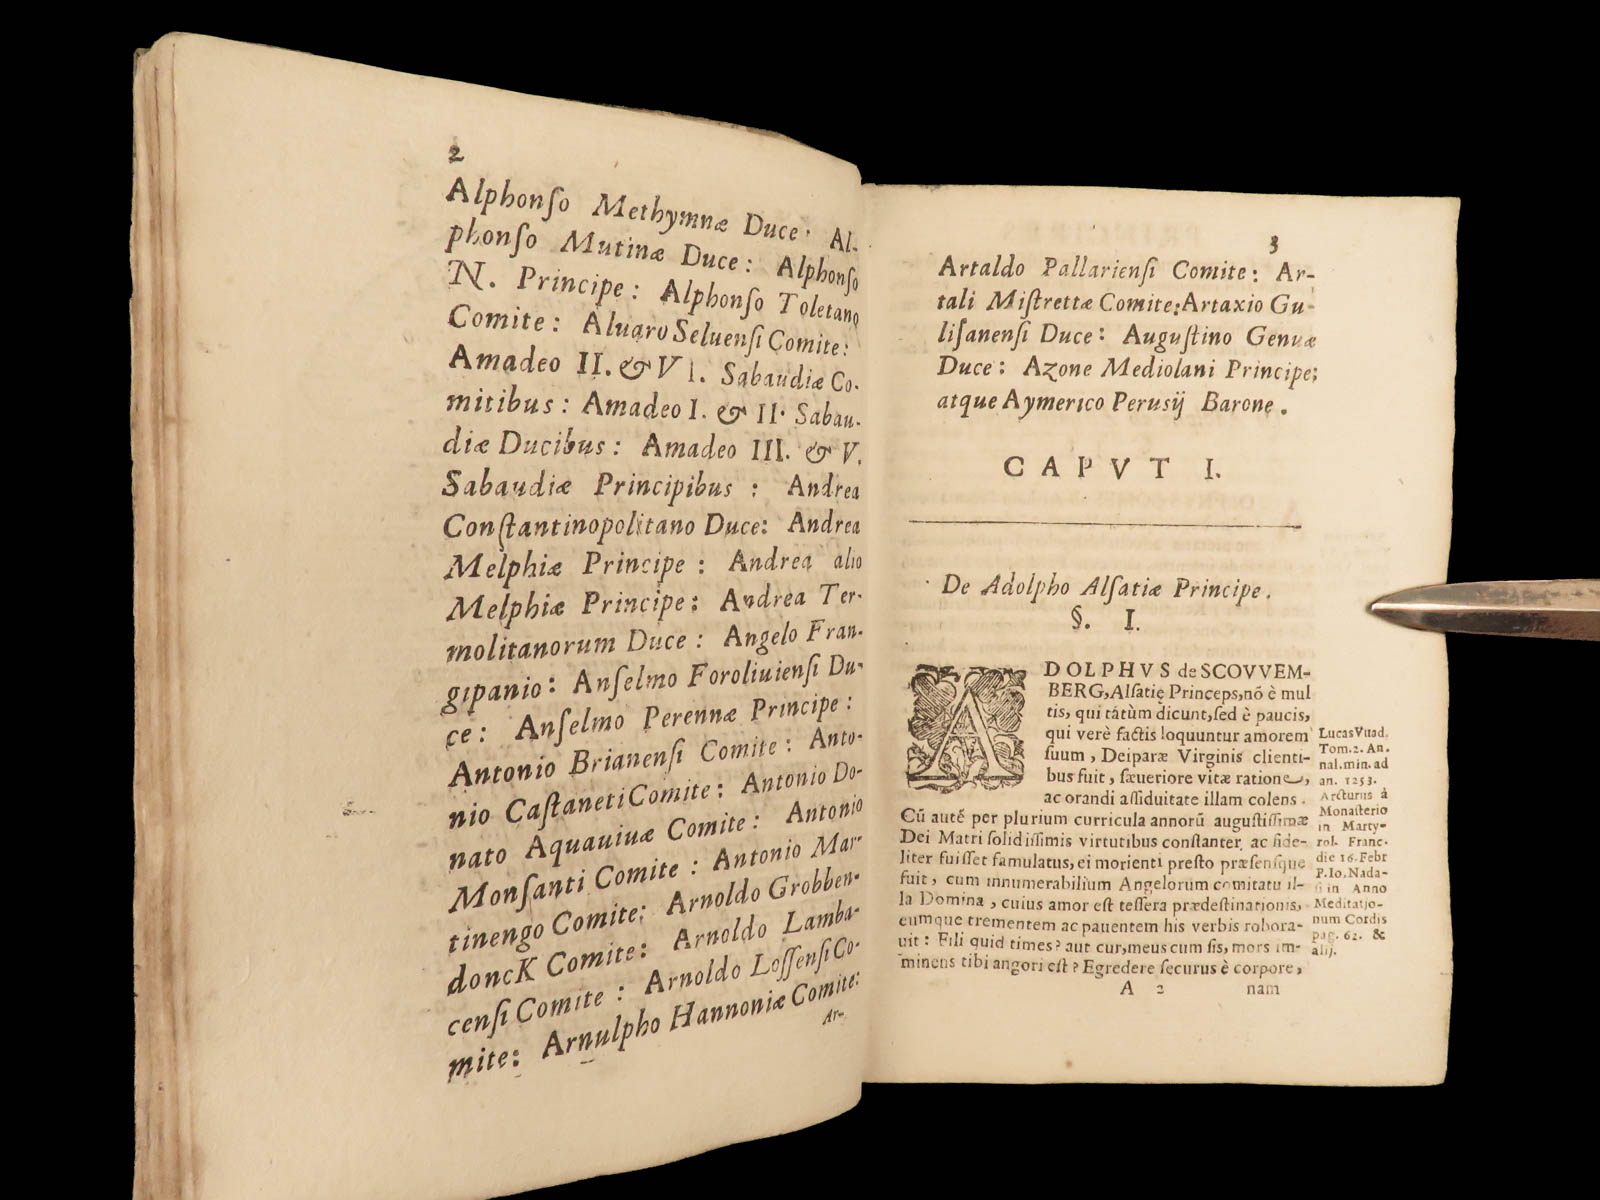 2
Alphonſo Methymnæ Duce: Al-
phonſo Mutinæ Duce: Alphonſo
N. Principe: Alphonſo Toletano
Comite: Aluaro Seluenſi Comite:
Amadeo II. & VI. Sabaudiæ Co-
mitibus: Amadeo I. & II. Sabau-
diæ Ducibus: Amadeo III. & V.
Sabaudiæ Principibus: Andrea
Conſtantinopolitano Duce: Andrea
Melphiæ Principe: Andrea alio
Melphiæ Principe: Andrea Ter-
molitanorum Duce: Angelo Fran-
gipanio: Anſelmo Foroliuienſi Du-
ce: Anſelmo Perennæ Principe:
Antonio Brianenſi Comite: Anto-
nio Caſtaneti Comite: Antonio Do-
nato Aquauiuæ Comite: Antonio
Monſanti Comite: Antonio Mar-
tinengo Comite: Arnoldo Grobben-
doncK Comite: Arnoldo Lamba-
cenſi Comite: Arnoldo Loſſenſi Co-
mite: Arnulpho Hannoniæ Comite:
Ar-
3
Artaldo Pallarienſi Comite: Ar-
tali Miſtrettæ Comite: Artaxio Gu-
liſanenſi Duce: Auguſtino Genuæ
Duce: Azone Mediolani Principe:
atque Aymerico Perusij Barone.
CAPVT I.
De Adolpho Alſatiæ Principe.
§. I.
ADOLPHVS de SCOVVEM-
BERG, Alſatię Princeps, nō è mul
tis, qui tátùm dicunt, ſed è paucis,
qui verè factis loquuntur amorem
ſuum, Deiparæ Virginis clienti-
bus fuit, ſæueriore vitæ ratione,
ac orandi aſſiduitate illam colens.
Cū autē per plurium curricula annorū auguſtiſſimæ
Dei Matri ſolidiſſimis virtutibus conſtanter, ac fide-
liter fuiſſet famulatus, ei morienti preſto præſenſque
fuit, cum innumerabilium Angelorum comitatu il-
la Domina, cuius amor eſt teſſera prædeſtinationis,
eumque trementem ac pauentem his verbis robora-
uit: Fili quid times? aut cur, meus cum ſis, mors im-
minens tibi angori eſt? Egredere ſecurus è corpore,
A 2 nam
Lucas Vuad.
Tom. 2. An.
nal. min. ad
an. 1253.
Arcturus à
Monaſterio
in Marty-
rol. Franc.
die 16. Febr
P. Io. Nada-
ſi in Anno
Meditatio-
num Cordis
pag. 62. &
alij.